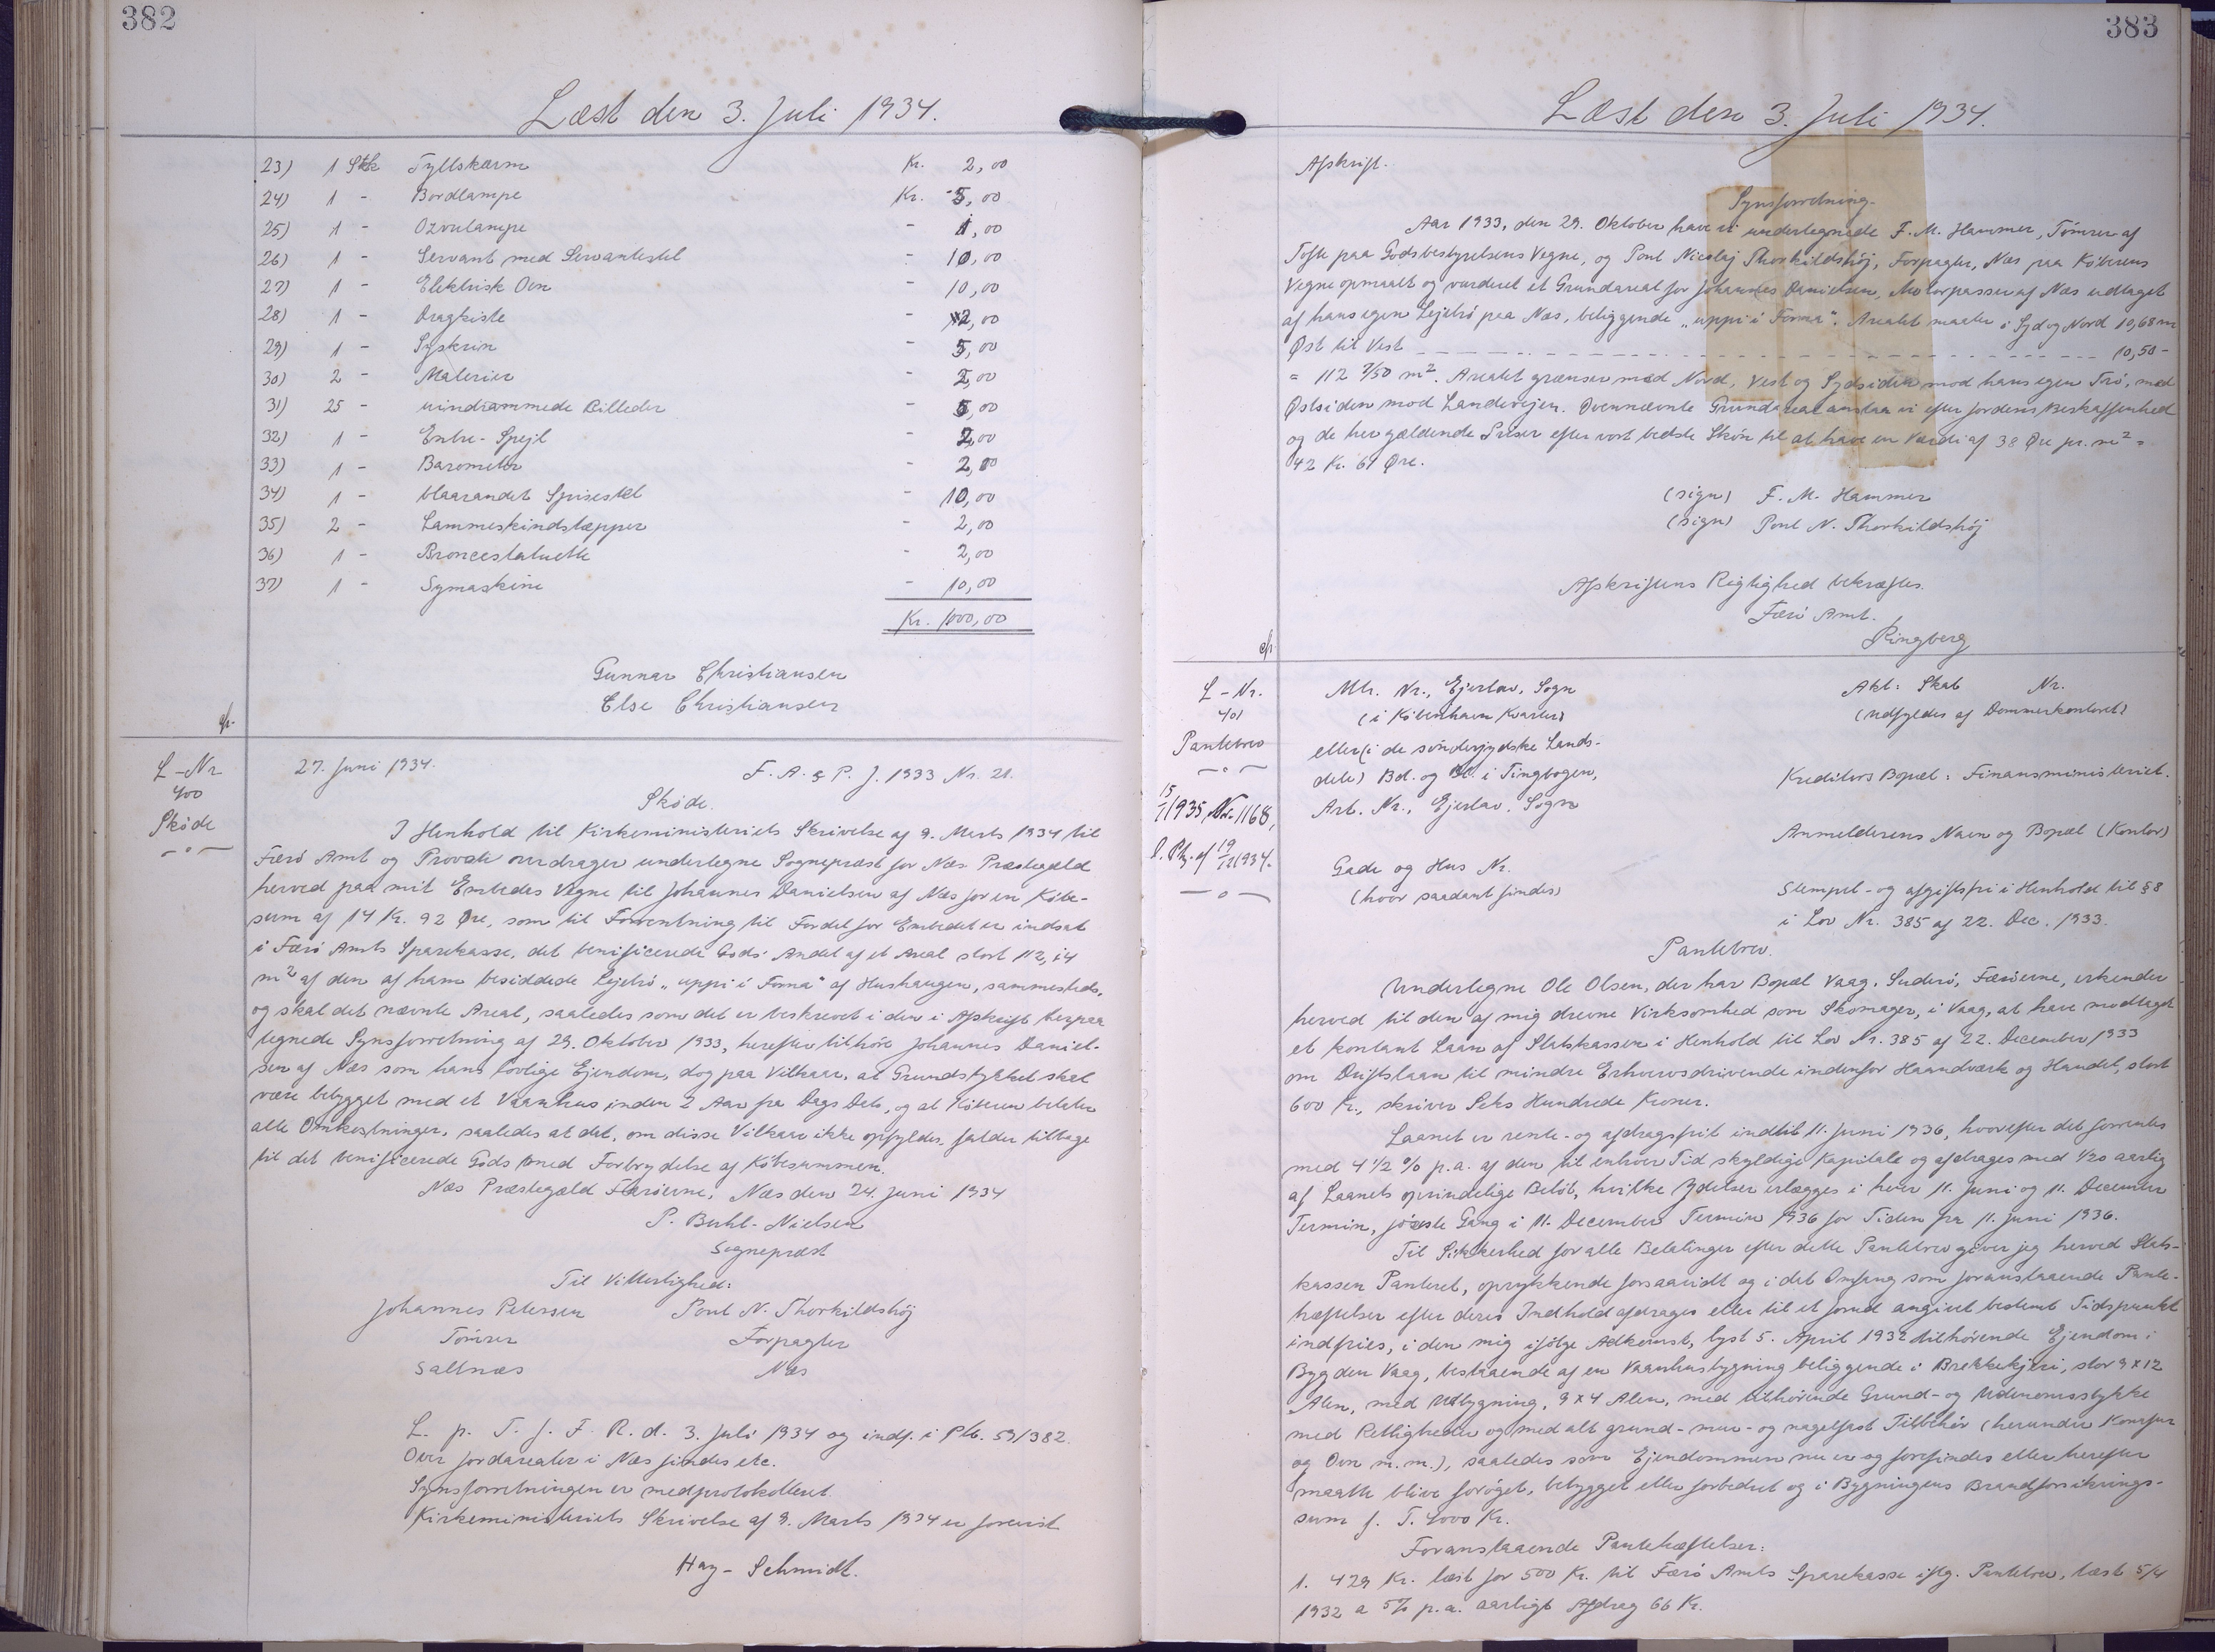 382
Læst den 3. Juli 1934.
23) 1 Stk Tyllskærm Kr. 2,00
24) 1 - Bordlampe Kr. 5,00
25) 1 - Ozonlampe - 1,00
26) 1 - Servant med Servantestel - 10,00
27) 1 - Elektrisk Ovn - 10,00
28) 1 - Dragkiste - 2,00
29) 1 - Syskrin - 5,00
30) 2 - Malerier - 2,00
31) 25 - uindrammede Billeder - 5,00
32) 1 - Entre-Spejl - 2,00
33) 1 - Barometer - 2,00
34) 1 - blaarandet Spisestel - 10,00
35) 2 - Lammeskindstæpper - 2,00
36) 1 - Broncestatuette - 2,00
37) 1 - Symaskine - 10,00
Kr. 1000,00
Gunnar Christiansen
Else Christiansen
L-Nr
400
Skøde
27. Juni 1934. F. A. & P. J. 1933 Nr. 21.
Skøde.
I Henhold til Kirkeministeriets Skrivelse af 9. Marts 1934 til
Færø Amt og Provsti overdrager undertegne Sognepræst for Næs Præstegæld
herved paa mit Embedes Vegne til Johannes Danielsen af Næs for en Købe-
sum af 14 Kr. 92 Øre, som til Forrentning til Fordel for Embedet er indsat
i Færø Amts Sparekasse, det benificerede Gods' Andel af et Areal stort 112,14
m² af den af ham besiddede Lejetrø „uppi i Forna" af Hushaugen, sammesteds,
og skal det nævnte Areal, saaledes som det er beskrevet i den i Afskrift herpaa
tegnede Synsforretning af 29. Oktober 1933, herefter tilhøre Johannes Daniel-
sen af Næs som hans lovlige Ejendom, dog paa Vilkaar, at Grundstykket skal
være bebygget med et Vaanhus inden 2 Aar fra Dags Dato, og at Køberen betaler
alle Omkostninger, saaledes at det, om disse Vilkaar ikke opfyldes, falder tilbage
til det benificerede Gods med Forbrydelse af Købesummen.
Næs Præstegæld Færøerne, Næs den 24. Juni 1934
P. Buhl-Nielsen
Sognepræst
Til Vitterlighed:
Johannes Petersen Poul N. Thorkildshøj
Tømrer Forpagter
Saltnæs Næs
L. p. T. f. F. R. d. 3. Juli 1934 og indf. i Ptb. 59/382.
Over Jordarealer i Næs findes etc.
Synsforretningen er medprotokolleret.
Kirkeministeriets Skrivelse af 9. Marts 1934 er forevist
Hay-Schmidt.
383
Læst den 3. Juli 1934.
Afskrift.
Synsforretning.
Aar 1933, den 29. Oktober have vi undertegnede F. M. Hammer, Tømrer af
Tofte paa Godsbestyrelsens Vegne, og Poul Nicolaj Thorkildshøj, Forpagter, Næs paa Køberens
Vegne opmaalt og vurderet et Grundareal for Johannes Danielsen, Motorpasser af Næs udtaget
af hans egen Lejetrø paa Næs, beliggende „uppi i Forna". Arealet maaler i Syd og Nord 10,68 m
Øst til Vest - - - 10,50 -
= 112 7/50 m². Arealet grænser mod Nord, Vest og Sydsiden mod hans egen Trø, med
Østsiden mod Landevejen. Ovennævnte Grundareal anslaa vi efter Jordens Beskaffenhed
og de her gældende Priser efter vort bedste Skøn til at have en Værdi af 38 Øre pr. m² =
42 Kr. 61 Øre.
(sign) F. M. Hammer
(sign) Poul N. Thorkildshøj
Afskriftens Rigtighed bekræftes.
Færø Amt.
Ringberg
L-Nr.
401
Pantebrev
15/1 1935, Nr. 1168,
19/12 1934.
Mtr. Nr., Ejerlav, Sogn Akt: Skab Nr.
(i København Kvarter) (udfyldes af Dommerkontoret)
eller (i de sønderjydske Lands-
dele) Bd. og Bl. i Tingbogen, Kreditors Bopæl: Finansministeriet.
Art. Nr., Ejerlav, Sogn
Anmelderens Navn og Bopæl (Kontor)
Gade og Hus Nr.
(hvor saadant findes) Stempel- og afgiftsfri i Henhold til § 8
i Lov Nr. 385 af 22. Dec. 1933.
Pantebrev.
Undertegne Ole Olsen, der har Bopæl Vaag, Suderø, Færøerne, erkender
herved til den af mig drevne Virksomhed som Skomager, i Vaag, at have modtaget
et kontant Laan af Statskassen i Henhold til Lov Nr. 385 af 22. December 1933
om Driftslaan til mindre Erhvervsdrivende indenfor Haandværk og Handel, stort
600 Kr., skriver Seks Hundrede Kroner.
Laanet er rente- og afdragsfrit indtil 11. Juni 1936, hvorefter det forrentes
med 4 1/2 % p.a. af den til enhver Tid skyldige Kapitale og afdrages med 1/20 aarlig
af Laanets oprindelige Beløb, hvilke Ydelser erlægges i hver 11. Juni og 11. December
Termin, første Gang i 11. December Termin 1936 for Tiden fra 11. Juni 1936.
Til Sikkerhed for alle Betalinger efter dette Pantebrev giver jeg herved Stats-
kassen Panteret, oprykkende forsaavidt og i det Omfang som foranstaaende Pante-
hæftelser efter deres Indhold afdrages eller til et forud angivet bestemt Tidspunkt
indfries, i den mig ifølge Adkomst, lyst 5. April 1932 tilhørende Ejendom i
Bygden Vaag, bestaaende af en Vaanhusbygning beliggende i Brekkekjeri, stor 9 x 12
Alen, med Udbygning, 9 x 4 Alen, med tilhørende Grund- og Udenomsstykke
med Rettigheder og med alt grund- mur- og nagelfast Tilbehør (herunder Komfur
og Ovn m.m.), saaledes som Ejendommen nu er og forefindes eller herefter
maatte blive forøget, bebygget eller forbedret og i Bygningens Brandforsikrings-
sum f. T. 4000 Kr.
Foranstaaende Pantehæftelser:
1. 429 Kr. læst for 500 Kr. til Færø Amts Sparekasse iflg. Pantebrev, læst 5/4
1932 a 5% p.a. aarligt Afdrag 66 Kr.